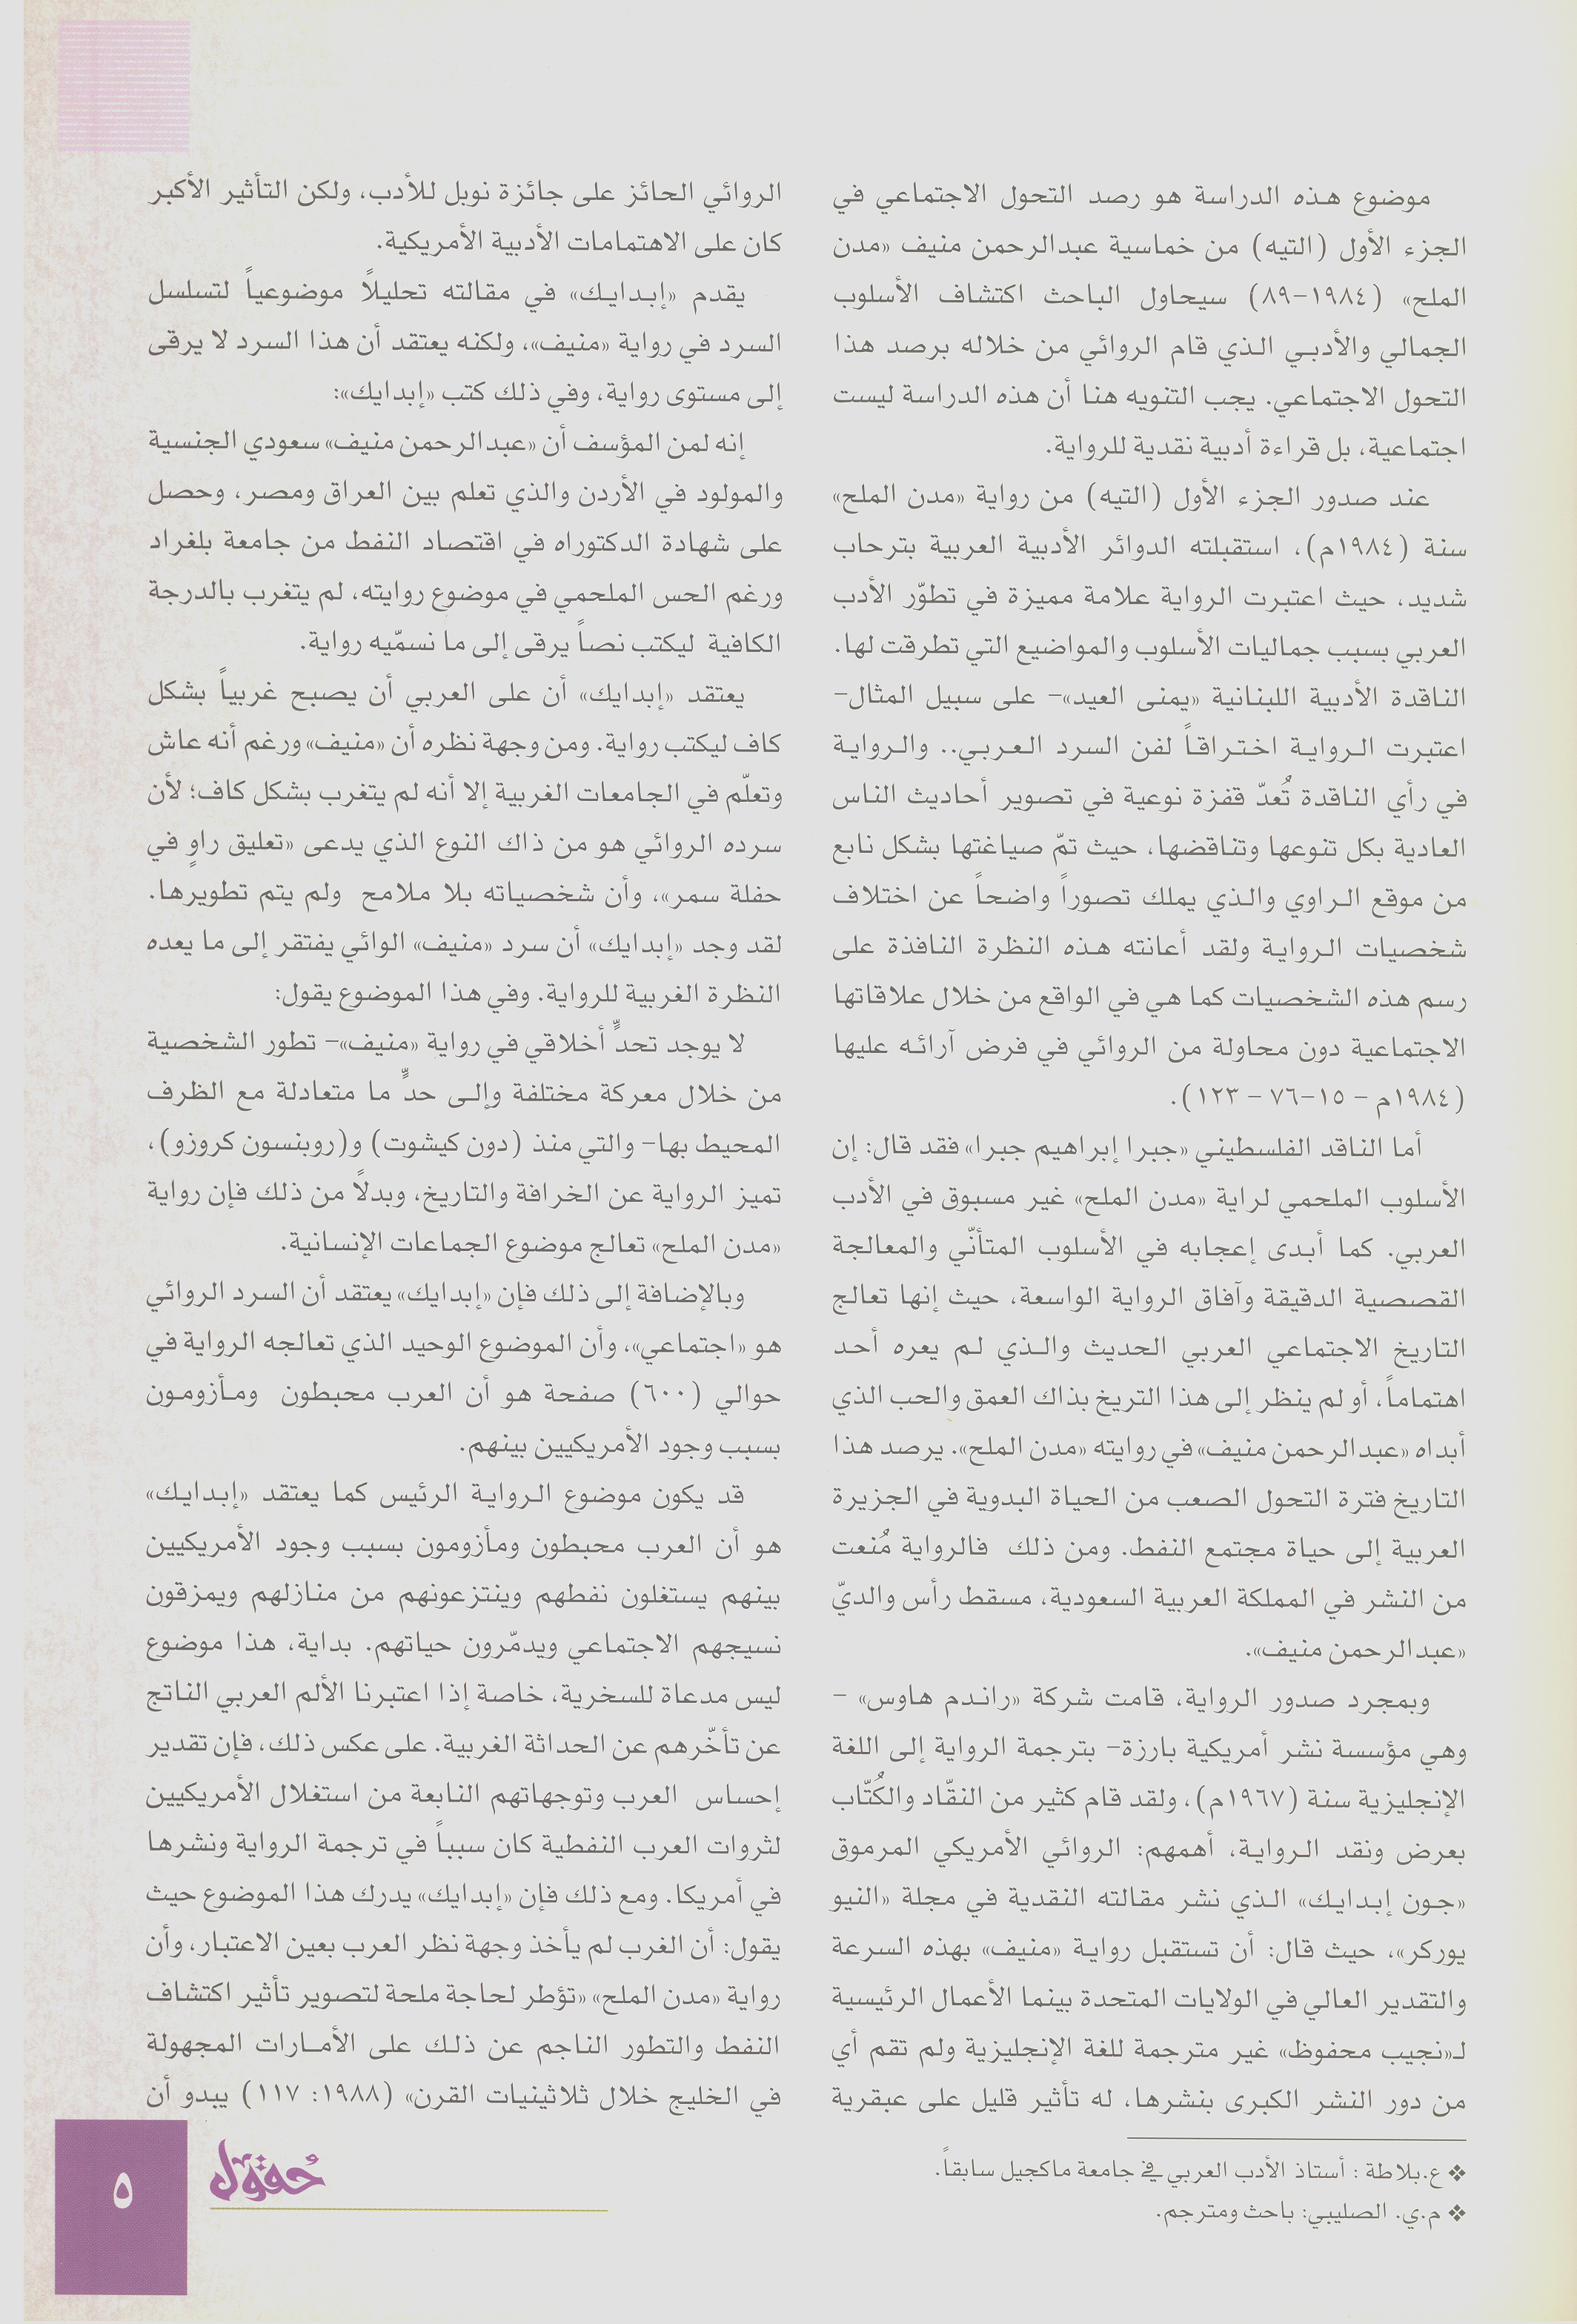 موضوع هذه الدراسة هو رصد التحول الاجتماعي في
الجزء الأول (التيه) من خماسية عبدالرحمن منيف «مدن
الملح» (١٩٨٤-٨٩) سيحاول الباحث اكتشاف الأسلوب
الجمالي والأدبي الذي قام الروائي من خلاله برصد هذا
التحول الاجتماعي. يجب التنويه هنا أن هذه الدراسة ليست
اجتماعية، بل قراءة أدبية نقدية للرواية.
عند صدور الجزء الأول (التيه) من رواية «مدن الملح»
سنة (١٩٨٤م)، استقبلته الدوائر الأدبية العربية بترحاب
شديد، حيث اعتبرت الرواية علامة مميزة في تطوّر الأدب
العربي بسبب جماليات الأسلوب والمواضيع التي تطرقت لها.
الناقدة الأدبية اللبنانية «يمنى العيد»- على سبيل المثال-
اعتبرت الرواية اختراقاً لفن السرد العربي.. والرواية
في رأي الناقدة تُعدّ قفزة نوعية في تصوير أحاديث الناس
العادية بكل تنوعها وتناقضها، حيث تمّ صياغتها بشكل نابع
من موقع الراوي والذي يملك تصوراً واضحاً عن اختلاف
شخصيات الرواية ولقد أعانته هذه النظرة النافذة على
رسم هذه الشخصيات كما هي في الواقع من خلال علاقاتها
الاجتماعية دون محاولة من الروائي في فرض آرائه عليها
(١٩٨٤م - ١٥-٧٦ - ١٢٣).
أما الناقد الفلسطيني «جبرا إبراهيم جبرا» فقد قال: إن
الأسلوب الملحمي لراية «مدن الملح» غير مسبوق في الأدب
العربي. كما أبدى إعجابه في الأسلوب المتأنّي والمعالجة
القصصية الدقيقة وآفاق الرواية الواسعة، حيث إنها تعالج
التاريخ الاجتماعي العربي الحديث والذي لم يعره أحد
اهتماماً، أو لم ينظر إلى هذا التريخ بذاك العمق والحب الذي
أبداه «عبدالرحمن منيف» في روايته «مدن الملح». يرصد هذا
التاريخ فترة التحول الصعب من الحياة البدوية في الجزيرة
العربية إلى حياة مجتمع النفط. ومن ذلك فالرواية مُنعت
من النشر في المملكة العربية السعودية، مسقط رأس والديّ
«عبدالرحمن منيف».
وبمجرد صدور الرواية، قامت شركة «راندم هاوس» -
وهي مؤسسة نشر أمريكية بارزة- بترجمة الرواية إلى اللغة
الإنجليزية سنة (١٩٦٧م)، ولقد قام كثير من النقّاد والكُتّاب
بعرض ونقد الرواية، أهمهم: الروائي الأمريكي المرموق
«جون إبدايك» الذي نشر مقالته النقدية في مجلة «النيو
يوركر»، حيث قال: أن تستقبل رواية «منيف» بهذه السرعة
والتقدير العالي في الولايات المتحدة بينما الأعمال الرئيسية
لـ«نجيب محفوظ» غير مترجمة للغة الإنجليزية ولم تقم أي
من دور النشر الكبرى بنشرها، له تأثير قليل على عبقرية
❖ ع.بلاطة : أستاذ الأدب العربي في جامعة ماكجيل سابقاً.
❖ م.ي. الصليبي: باحث ومترجم.
الروائي الحائز على جائزة نوبل للأدب، ولكن التأثير الأكبر
كان على الاهتمامات الأدبية الأمريكية.
يقدم «إبدايك» في مقالته تحليلاً موضوعياً لتسلسل
السرد في رواية «منيف»، ولكنه يعتقد أن هذا السرد لا يرقى
إلى مستوى رواية، وفي ذلك كتب «إبدايك»:
إنه لمن المؤسف أن «عبدالرحمن منيف» سعودي الجنسية
والمولود في الأردن والذي تعلم بين العراق ومصر، وحصل
على شهادة الدكتوراه في اقتصاد النفط من جامعة بلغراد
ورغم الحس الملحمي في موضوع روايته، لم يتغرب بالدرجة
الكافية ليكتب نصاً يرقى إلى ما نسمّيه رواية.
يعتقد «إبدايك» أن على العربي أن يصبح غربياً بشكل
كاف ليكتب رواية. ومن وجهة نظره أن «منيف» ورغم أنه عاش
وتعلّم في الجامعات الغربية إلا أنه لم يتغرب بشكل كاف؛ لأن
سرده الروائي هو من ذاك النوع الذي يدعى «تعليق راوٍ في
حفلة سمر»، وأن شخصياته بلا ملامح ولم يتم تطويرها.
لقد وجد «إبدايك» أن سرد «منيف» الوائي يفتقر إلى ما يعده
النظرة الغربية للرواية. وفي هذا الموضوع يقول:
لا يوجد تحدٍّ أخلاقي في رواية «منيف»- تطور الشخصية
من خلال معركة مختلفة وإلى حدٍّ ما متعادلة مع الظرف
المحيط بها- والتي منذ (دون كيشوت) و(روبنسون كروزو)،
تميز الرواية عن الخرافة والتاريخ، وبدلاً من ذلك فإن رواية
«مدن الملح» تعالج موضوع الجماعات الإنسانية.
وبالإضافة إلى ذلك فإن «إبدايك» يعتقد أن السرد الروائي
هو «اجتماعي»، وأن الموضوع الوحيد الذي تعالجه الرواية في
حوالي (٦٠٠) صفحة هو أن العرب محبطون ومأزومون
بسبب وجود الأمريكيين بينهم.
قد يكون موضوع الرواية الرئيس كما يعتقد «إبدايك»
هو أن العرب محبطون ومأزومون بسبب وجود الأمريكيين
بينهم يستغلون نفطهم وينتزعونهم من منازلهم ويمزقون
نسيجهم الاجتماعي ويدمّرون حياتهم. بداية، هذا موضوع
ليس مدعاة للسخرية، خاصة إذا اعتبرنا الألم العربي الناتج
عن تأخّرهم عن الحداثة الغربية. على عكس ذلك، فإن تقدير
إحساس العرب وتوجهاتهم النابعة من استغلال الأمريكيين
لثروات العرب النفطية كان سبباً في ترجمة الرواية ونشرها
في أمريكا. ومع ذلك فإن «إبدايك» يدرك هذا الموضوع حيث
يقول: أن الغرب لم يأخذ وجهة نظر العرب بعين الاعتبار، وأن
رواية «مدن الملح» «تؤطر لحاجة ملحة لتصوير تأثير اكتشاف
النفط والتطور الناجم عن ذلك على الأمارات المجهولة
في الخليج خلال ثلاثينيات القرن» (١٩٨٨: ١١٧) يبدو أن
حُقول
٥